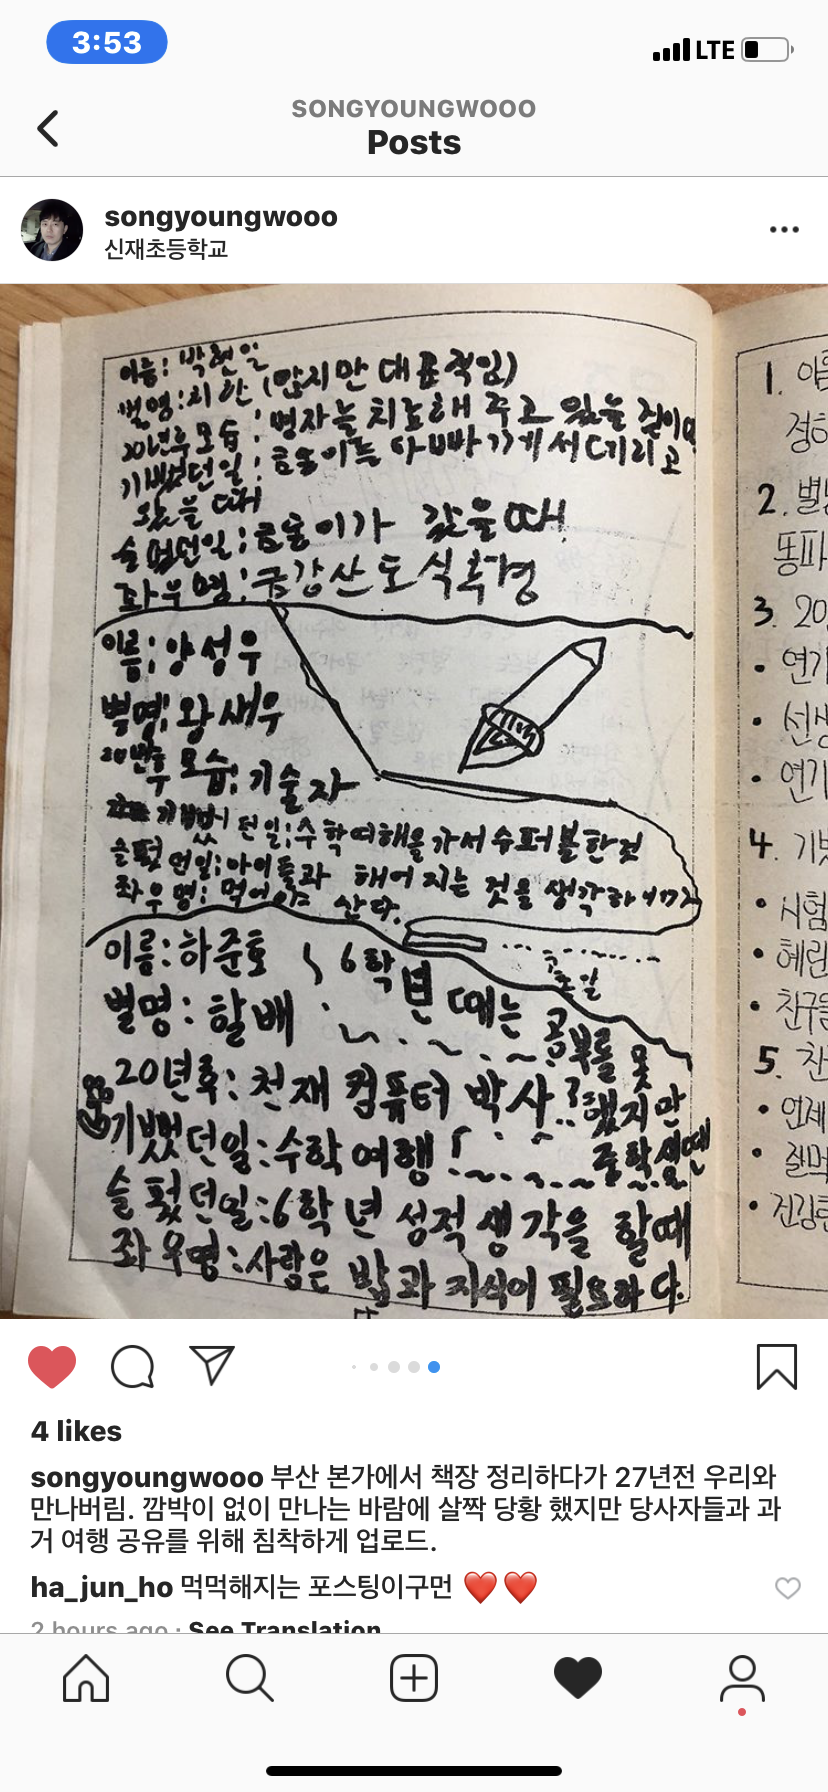 3:53
LTE
SONGYOUNGWOOO
Posts
songyoungwooo
신재초등학교
이름: 박현일
별명: (많지만 대표적임)
20년후 모습: 병자를 치료해 주고 있을 것이며
기뻤던일: 이를 아빠가 가게서 데리고
왔을 때
슬펐던일: 이가 갔을때
좌우명: 금강산도 식후경
이름: 양성우
별명: 왕새우
20년후 모습: 기술자
기뻤던일: 수학여행을 가서 수퍼볼한것
슬펐던일: 아이들과 헤어지는 것을 생각하니까
좌우명: 먹어야 산다.
이름: 하준호
6학년 때는
공부를 못
했지만
중학생땐
별명: 할배
20년후: 천재 컴퓨터 박사
기뻤던일: 수학여행!
슬펐던일: 6학년 성적생각을 할때
좌우명: 사람은 밥과 지식이 필요하다.
1. 이름
2. 별명
똥파
3. 20
• 연기
• 선생
• 연기
4. 기뻤
• 시험
• 혜린
• 친구들
5.
• 언제
4 likes
songyoungwooo 부산 본가에서 책장 정리하다가 27년전 우리와
만나버림. 깜박이 없이 만나는 바람에 살짝 당황 했지만 당사자들과 과
거 여행 공유를 위해 침착하게 업로드.
ha_jun_ho 먹먹해지는 포스팅이구먼 ❤️❤️
2 hours ago · See Translation